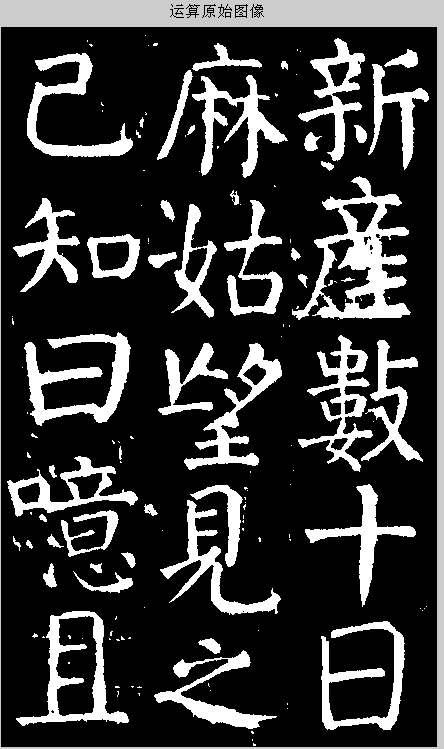 运算原始图像
新產數十日
麻姑望見之
已知曰噫且